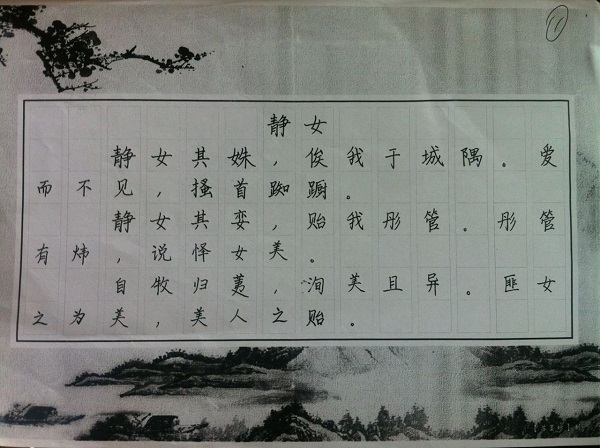 ①
静女
静女其姝，俟我于城隅。爱
而不见，搔首踟蹰。
静女其娈，贻我彤管。彤管
有炜，说怿女美。
自牧归荑，洵美且异。匪女
之为美，美人之贻。